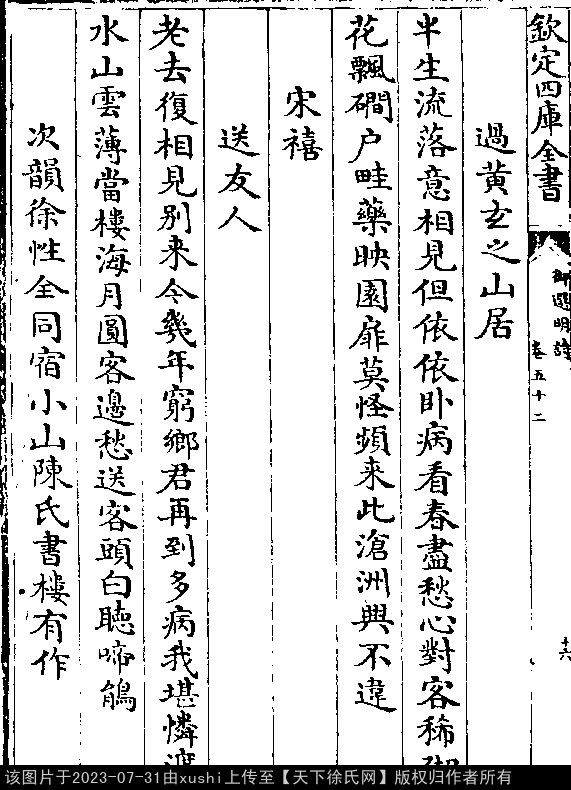 欽定四庫全書
御選明詩
卷五十二
十六
過黃玄之山居
半生流落意相見但依依卧病看春盡愁心對客稀
花飄磵户畦藥映園扉莫怪頻来此滄洲興不違
宋禧
送友人
老去復相見别来今幾年窮鄉君再到多病我堪憐
水山雲薄當樓海月圓客邊愁送客頭白聽啼鵑
次韻徐性全同宿小山陳氏書樓有作
该图片于2023-07-31由xushi上传至【天下徐氏网】版权归作者所有